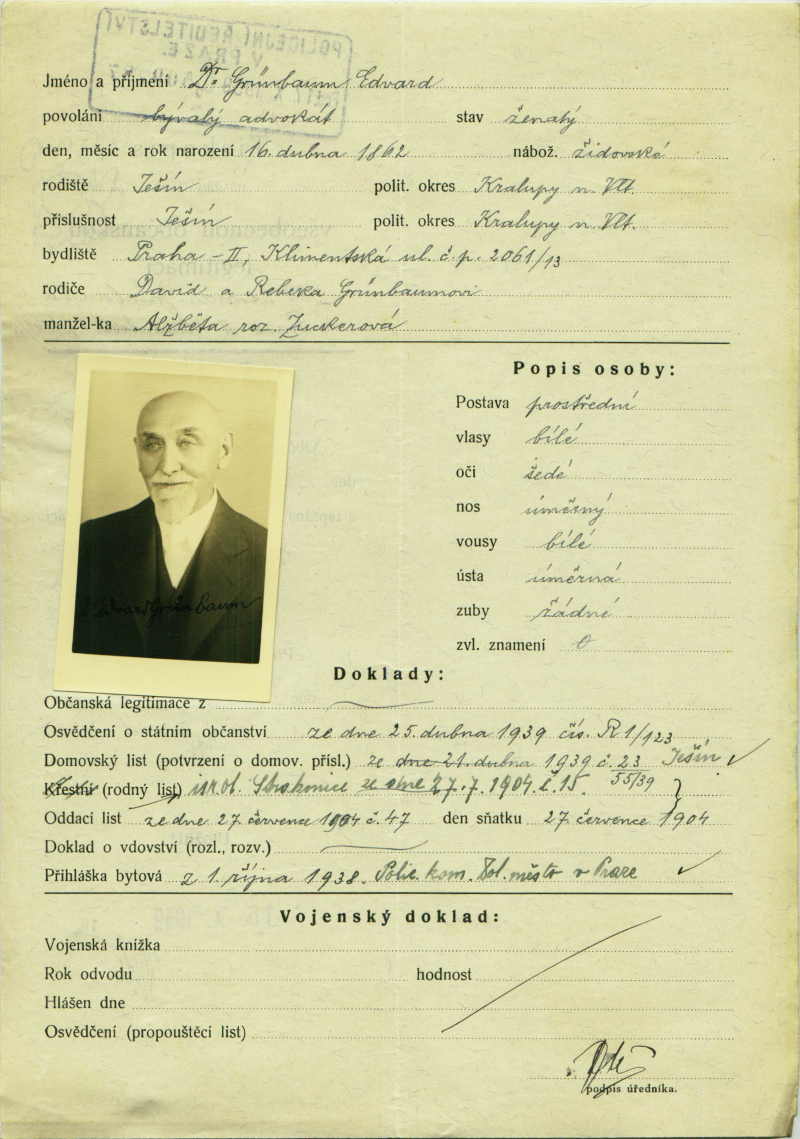 POLICEJNÍ ŘEDITELSTVÍ
V PRAZE.
Jméno a příjmení Dr. Grünbaum Edvard
povolání bývalý advokát stav ženatý
den, měsíc a rok narození 16. dubna 1862 nábož. židovské
rodiště Ješín polit. okres Kralupy n. Vlt.
příslušnost Ješín polit. okres Kralupy n. Vlt.
bydliště Praha - II, Klimentská ul. č. p. 2061/13
rodiče David a Rebeka Grünbaumovi
manžel-ka Alžběta roz. Zuckerová
Popis osoby:
Postava prostřední
vlasy bílé
oči šedé
nos úměrný
vousy bílé
ústa úměrná
zuby žádné
zvl. znamení 0
Edvard Grünbaum
Doklady:
Občanská legitimace z
Osvědčení o státním občanství ze dne 25. dubna 1939 čís. R1/123
Domovský list (potvrzení o domov. přísl.) ze dne 21. dubna 1939 č. 23 Ješín
55/39
Křestní (rodný list) isr. ob. Strakonice ze dne 27.7. 1904 č. 15.
Oddací list ze dne 27. července 1904 č. 47 den sňatku 27. července 1904
Doklad o vdovství (rozl., rozv.)
Přihláška bytová z 1. října 1938. Polic. kom. Dol. město v Praze
Vojenský doklad:
Vojenská knížka
Rok odvodu hodnost
Hlášen dne
Osvědčení (propouštěcí list)
podpis úředníka.